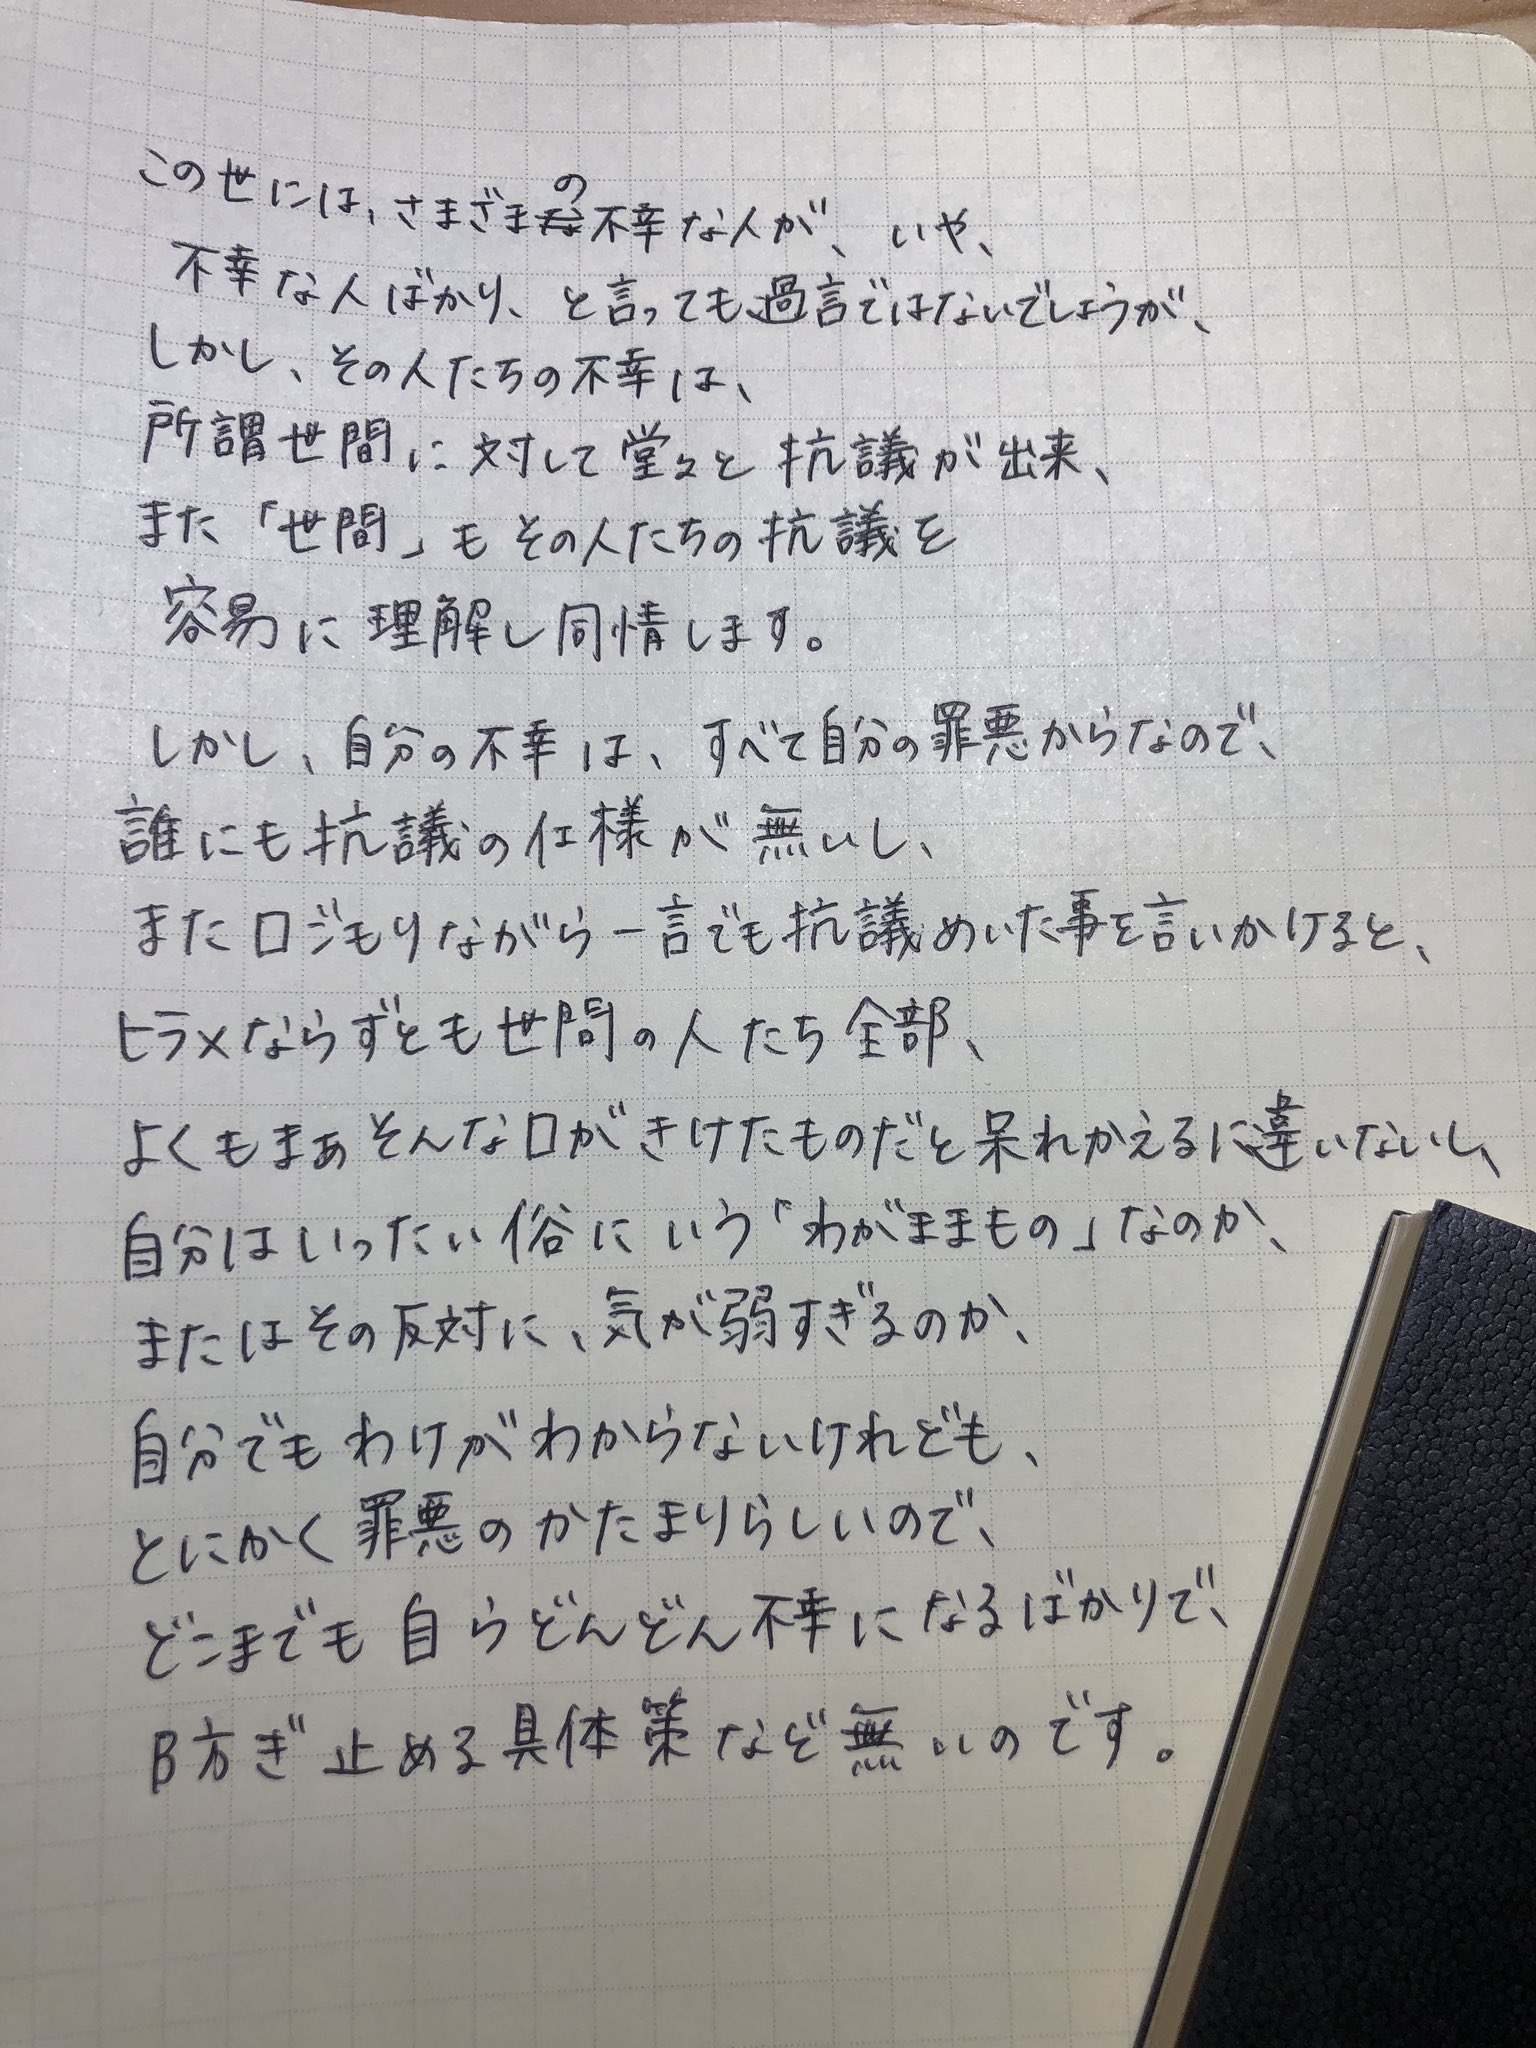 この世には、さまざまの不幸な人が、いや、
不幸な人ばかり、と言っても過言ではないでしょうが、
しかし、その人たちの不幸は、
所謂世間に対して堂々と抗議が出来、
また「世間」もその人たちの抗議を
容易に理解し同情します。
しかし、自分の不幸は、すべて自分の罪悪からなので、
誰にも抗議の仕様が無いし、
また口ごもりながら一言でも抗議めいた事を言いかけると、
ヒラメならずとも世間の人たち全部、
よくもまぁそんな口がきけたものだと呆れかえるに違いないし、
自分はいったい俗にいう「わがままもの」なのか、
またはその反対に、気が弱すぎるのか、
自分でもわけがわからないけれども、
とにかく罪悪のかたまりらしいので、
どこまでも自らどんどん不幸になるばかりで、
防ぎ止める具体策など無いのです。